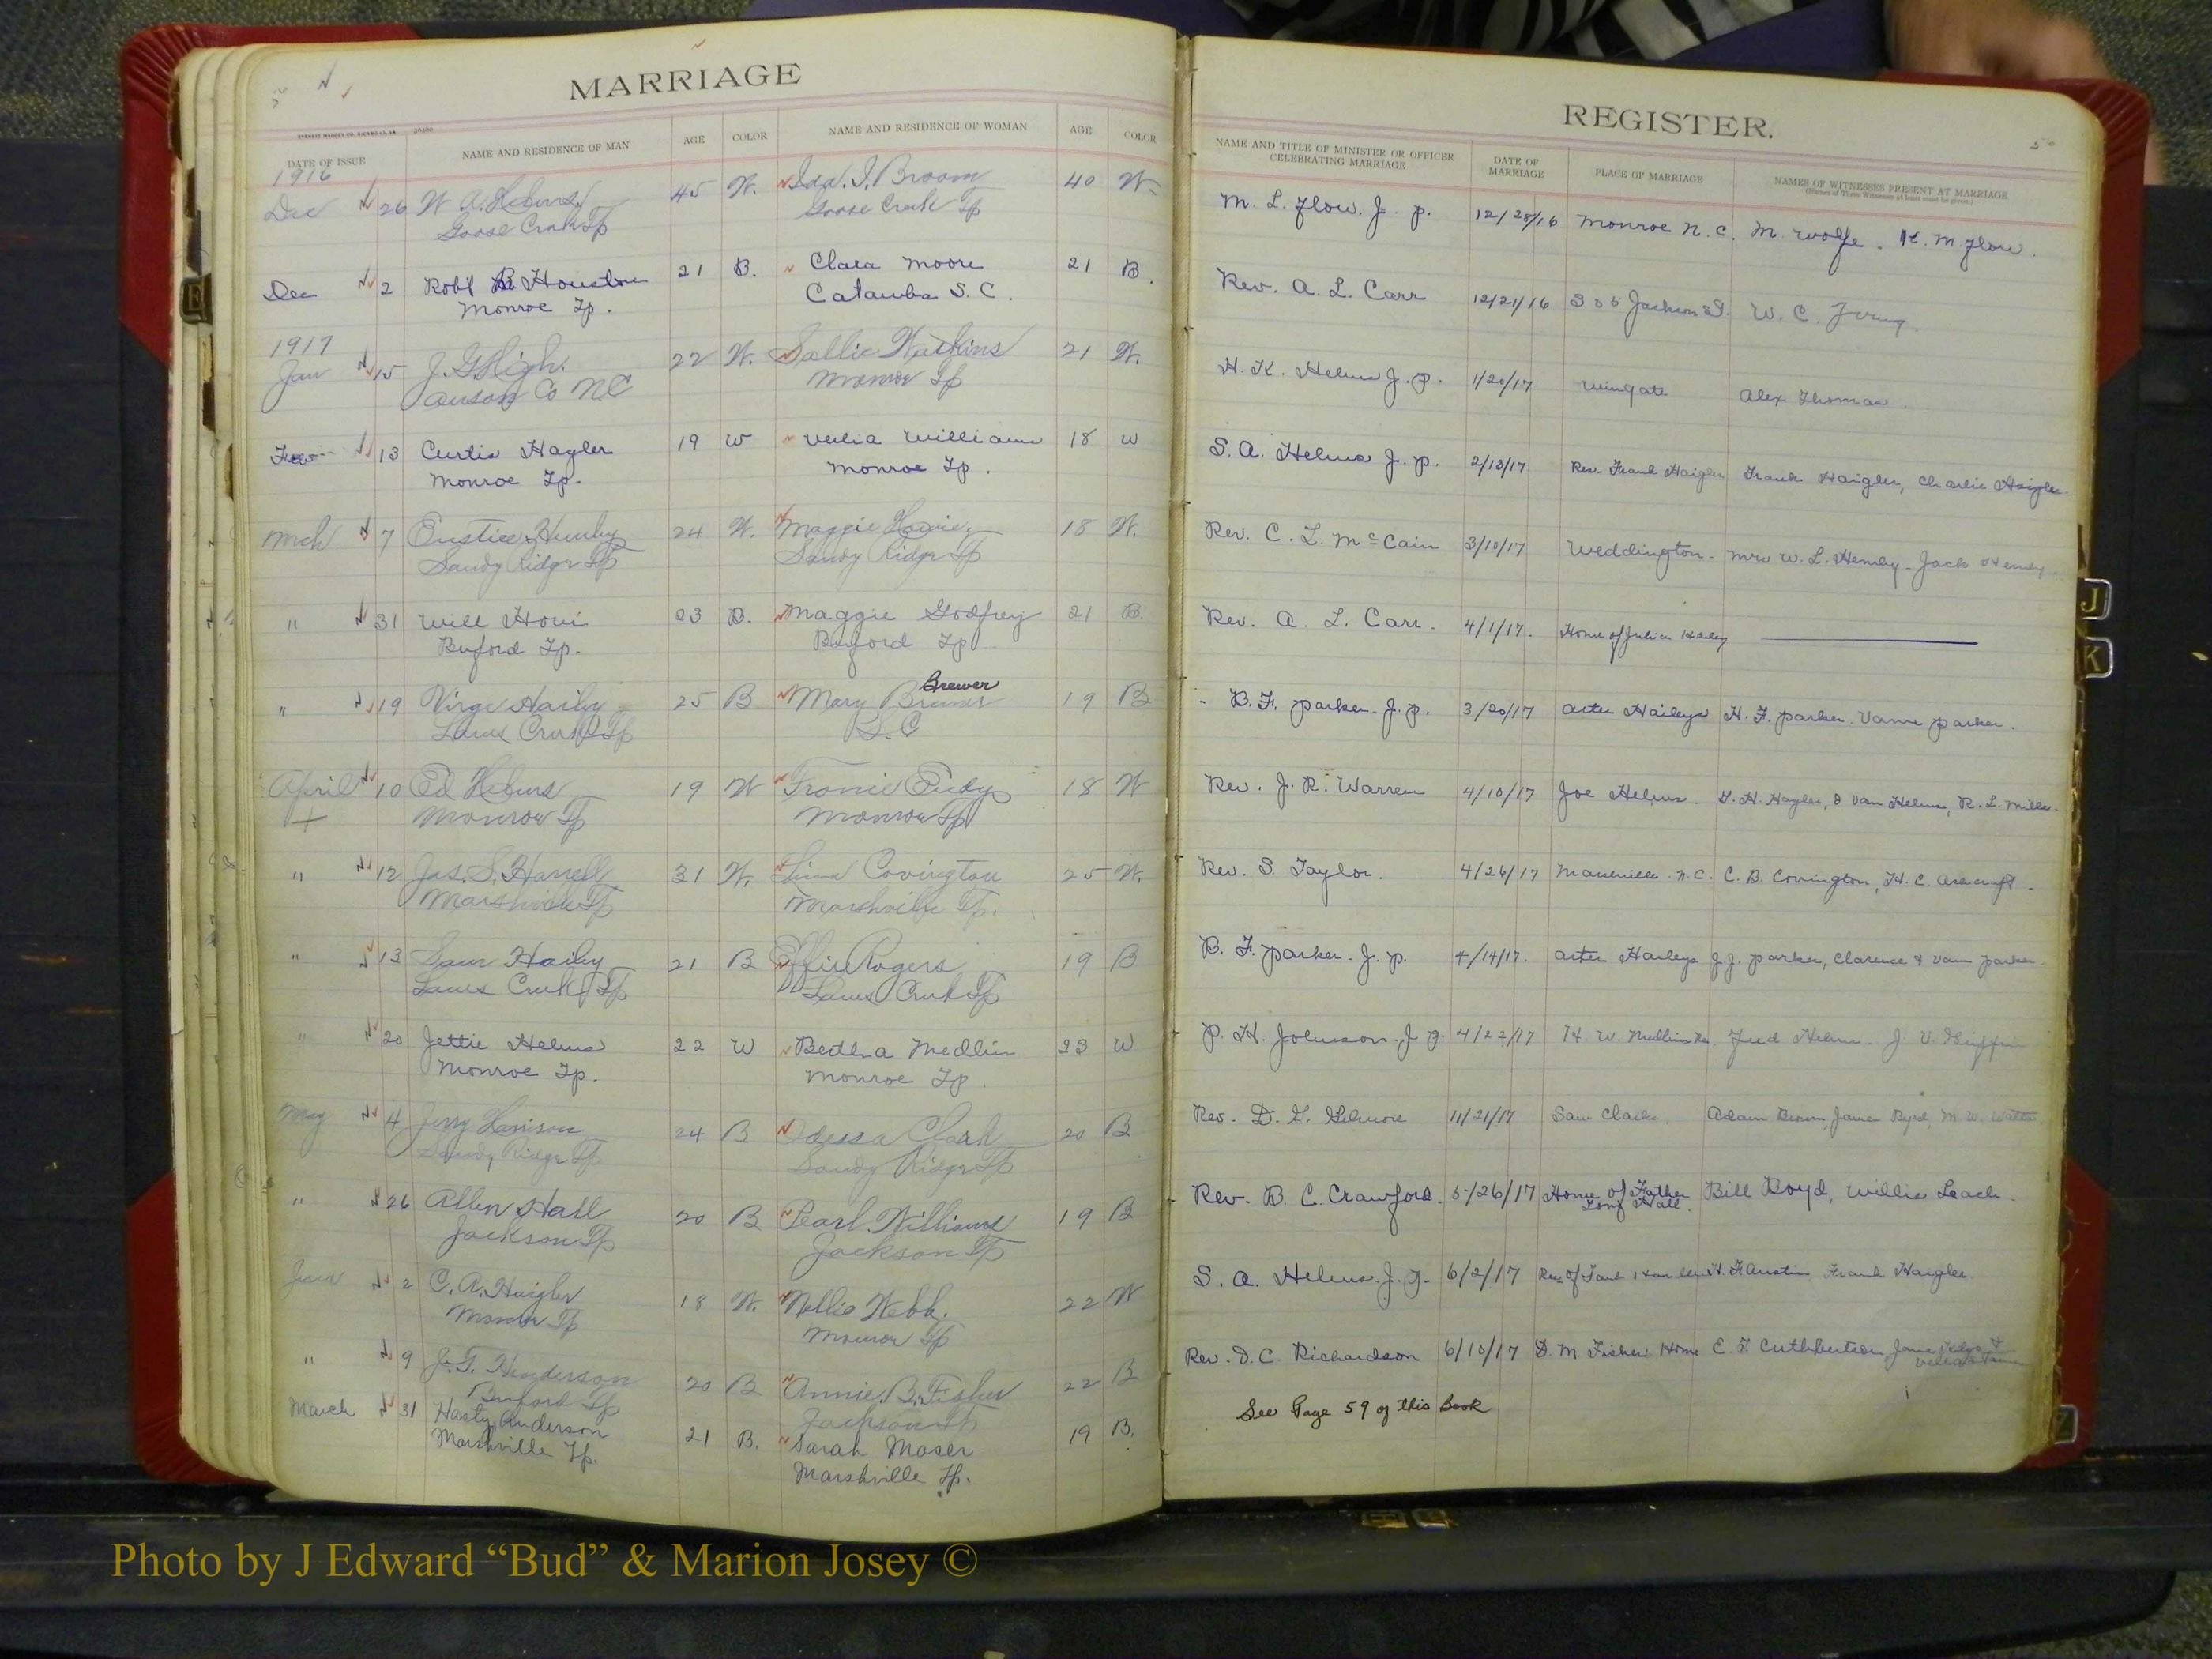 MARRIAGE
DATE OF ISSUE NAME AND RESIDENCE OF MAN AGE COLOR NAME AND RESIDENCE OF WOMAN AGE COLOR
1916
Dec 26 W. A. Helms 45 W. Ida. I. Broom 40 W.
Goose Creek Tp Goose Creek Tp
Dec 2 Robt Houston 21 B. Clara Moore 21 B.
Monroe Tp. Catauba S. C.
1917
Jan 15 J. G. High 22 W. Sallie Watkins 21 W.
Anson Co N.C Monroe Tp
13 Curtis Hagler 19 W Williams 18 W
Monroe Tp. Monroe Tp.
Mch 7 Hemby 24 W. Maggie 18 W.
Sandy Ridge Tp Sandy Ridge Tp
" 31 Will 23 B. Maggie Godfrey 21 B
Buford Tp. Buford Tp
" 19 Virge Haily 25 B Mary Brewer 19 B
Lanes Creek Tp S.C
April 10 Ed Helms 19 W Fronie Eudy 18 W
Monroe Tp Monroe Tp
" 12 Jas. S. Harrell 31 W. Covington 25 W.
Marshville Tp Marshville Tp.
" 13 Sam Hailey 21 B Effie Rogers 19 B
Lanes Creek Tp Lanes Creek Tp
" 20 Jettie Helms 22 W Bertha Medlin 23 W
Monroe Tp. Monroe Tp.
May 4 Jerry 24 B Odessa Clark 20 B
Sandy Ridge Tp Sandy Ridge Tp
" 26 Allen Hall 20 B Pearl Williams 19 B
Jackson Tp Jackson Tp
June 2 C. A. Haigler 18 W. Nellie Webb. 22 W
Monroe Tp Monroe Tp
" 9 J. T. Henderson 20 B Annie B. Fisher 22 B
Buford Tp Jackson Tp
March 31 Hasty Anderson 21 B. Sarah Moser 19 B.
Marshville Tp. Marshville Tp.
REGISTER.
NAME AND TITLE OF MINISTER OR OFFICER CELEBRATING MARRIAGE DATE OF MARRIAGE PLACE OF MARRIAGE NAMES OF WITNESSES PRESENT AT MARRIAGE
M. L. Flow. J. P. 12/28/16 Monroe N. C. M. Wolfe. K. M. Flow.
Rev. A. L. Carr 12/21/16 305 Jackson St. W. C.
H. K. Helms J. P. 1/20/17 Wingate Alex Thomas.
S. A. Helms J. P. 2/13/17 Res. Frank Haigler Frank Haigler, Charlie Haigler.
Rev. C. L. McCain 3/10/17 Weddington. Mrs W. L. Hemby. Jack Hemby
Rev. A. L. Carr. 4/1/17. Home of Julius
B. F. Parker. J. P. 3/20/17 Arter Haileys H. F. Parker. Vann Parker.
Rev. J. R. Warren 4/10/17 Joe Helms. Hagler, Van Helms, R. L. Mills.
Rev. S. Taylor. 4/26/17 Marshville. N.C. C. B. Covington, H. C. Ashcraft.
B. F. Parker. J. P. 4/14/17. Arter Haileys J. J. Parker, Clarence & Vann Parker.
P. H. Johnson. J P. 4/22/17 H. W. Medlin Fred Helms. J. V. Griffin
Rev. D. L. Gilmore 11/21/17 Sam Clark. Adam Brown, James Byrd, M. W. Watts
Rev. B. C. Crawford. 5/26/17 Home of Father Bill Boyd, Willis Leach.
Tony Hall.
S. A. Helms. J. P. 6/2/17 Res of Frank F Austin Frank Haigler.
Rev. D. C. Richardson 6/10/17 D. M. Fisher Home E. T. Cuthbertson
See Page 59 of this Book
E
J
K
Photo by J Edward “Bud” & Marion Josey ©